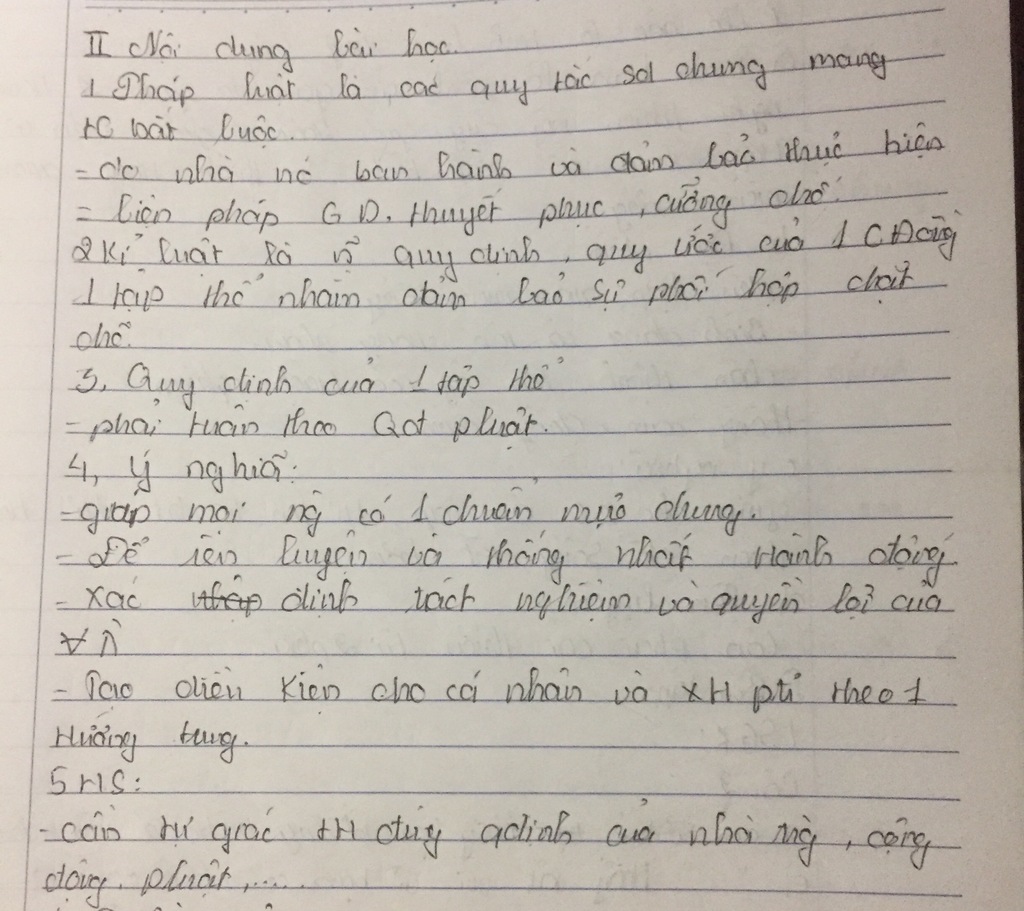 II Nội dung bài học.
1 Pháp luật là các quy tắc sd chung mang
tc bắt buộc.
- do nhà nc ban hành và đảm bảo thực hiện
- biện pháp GD. thuyết phục, cưỡng chế.
2 Kỉ luật là n~ quy định, quy ước của 1 C Đồng
1 tập thể nhằm đảm bảo sự phối hợp chặt
chẽ.
3, Quy định của 1 tập thể
- phải tuân theo Qđ pluật.
4, ý nghĩa:
- giúp mọi ng có 1 chuẩn mực chung.
- Để rèn luyện và thống nhất Hành động.
- xác định tách nghiệm và quyền lợi của
- Tạo điều kiện cho cá nhân và XH ptr theo 1
Hướng tung.
5 HS:
- cần tự giác tH đúng qđịnh của nhà tr\`g, cộng
động. pluật,.....